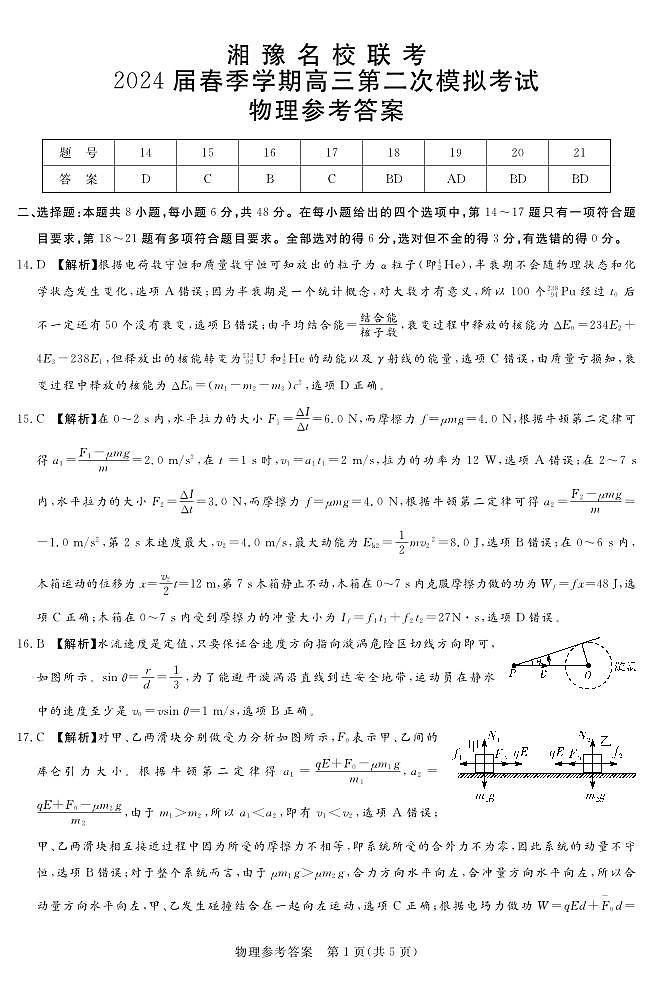 湘豫名校联考
2024届春季学期高三第二次模拟考试
物理参考答案
题 号 14 15 16 17 18 19 20 21
答 案 D C B C BD AD BD BD
二、选择题:本题共8小题,每小题6分,共48分。在每小题给出的四个选项中,第14~17题只有一项符合题
目要求,第18~21题有多项符合题目要求。全部选对的得6分,选对但不全的得3分,有选错的得0分。
14.D 【解析】根据电荷数守恒和质量数守恒可知放出的粒子为α粒子(即⁴₂He),半衰期不会随物理状态和化
学状态发生变化,选项A错误;因为半衰期是一个统计概念,对大数才有意义,所以100个²³⁸₉₄Pu经过t₀后
不一定还有50个没有衰变,选项B错误;由平均结合能=结合能/核子数,衰变过程中释放的核能为ΔE₀=234E₂+
4E₃-238E₁,但释放出的核能转变为²³⁴₉₂U和⁴₂He的动能以及γ射线的能量,选项C错误,由质量亏损知,衰
变过程中释放的核能为ΔE₀=(m₁-m₂-m₃)c²,选项D正确。
15.C 【解析】在0~2 s内,水平拉力的大小F₁=ΔI/Δt=6.0 N,而摩擦力f=μmg=4.0 N,根据牛顿第二定律可
得a₁=(F₁-μmg)/m=2.0 m/s²,在t=1 s时,v₁=a₁t₁=2 m/s,拉力的功率为12 W,选项A错误;在2~7 s
内,水平拉力的大小F₂=ΔI/Δt=3.0 N,而摩擦力f=μmg=4.0 N,根据牛顿第二定律可得a₂=(F₂-μmg)/m=
-1.0 m/s²,第2 s末速度最大,v₂=4.0 m/s,最大动能为Eₖ₂=1/2mv₂²=8.0 J,选项B错误;在0~6 s内,
木箱运动的位移为x=v₂/2t=12 m,第7 s木箱静止不动,木箱在0~7 s内克服摩擦力做的功为W_f=fx=48 J,选
项C正确;木箱在0~7 s内受到摩擦力的冲量大小为I_f=f₁t₁+f₂t₂=27N·s,选项D错误。
16.B 【解析】水流速度是定值,只要保证合速度方向指向漩涡危险区切线方向即可,
如图所示。sin θ=r/d=1/3,为了能避开漩涡沿直线到达安全地带,运动员在静水
中的速度至少是v₀=vsin θ=1 m/s,选项B正确。
P v O 漩涡
17.C 【解析】对甲、乙两滑块分别做受力分析如图所示,F₀表示甲、乙间的
库仑引力大小。根据牛顿第二定律得a₁=(qE+F₀-μm₁g)/m₁,a₂=
(qE+F₀-μm₂g)/m₂,由于m₁>m₂,所以a₁<a₂,即有v₁<v₂,选项A错误;
甲 N₁ f₁ F₀ qE m₁g
N₂ 乙 qE F₀ f₂ m₂g
甲、乙两滑块相互接近过程中因为所受的摩擦力不相等,即系统所受的合外力不为零,因此系统的动量不守
恒,选项B错误;对于整个系统而言,由于μm₁g>μm₂g,合力方向水平向左,合冲量方向水平向左,所以合
动量方向水平向左,甲、乙发生碰撞结合在一起向左运动,选项C正确;根据电场力做功W=qEd+F̄₀d=
物理参考答案 第1页(共5页)